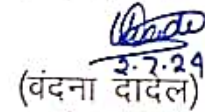 2.7.24
(वंदना दादेल)